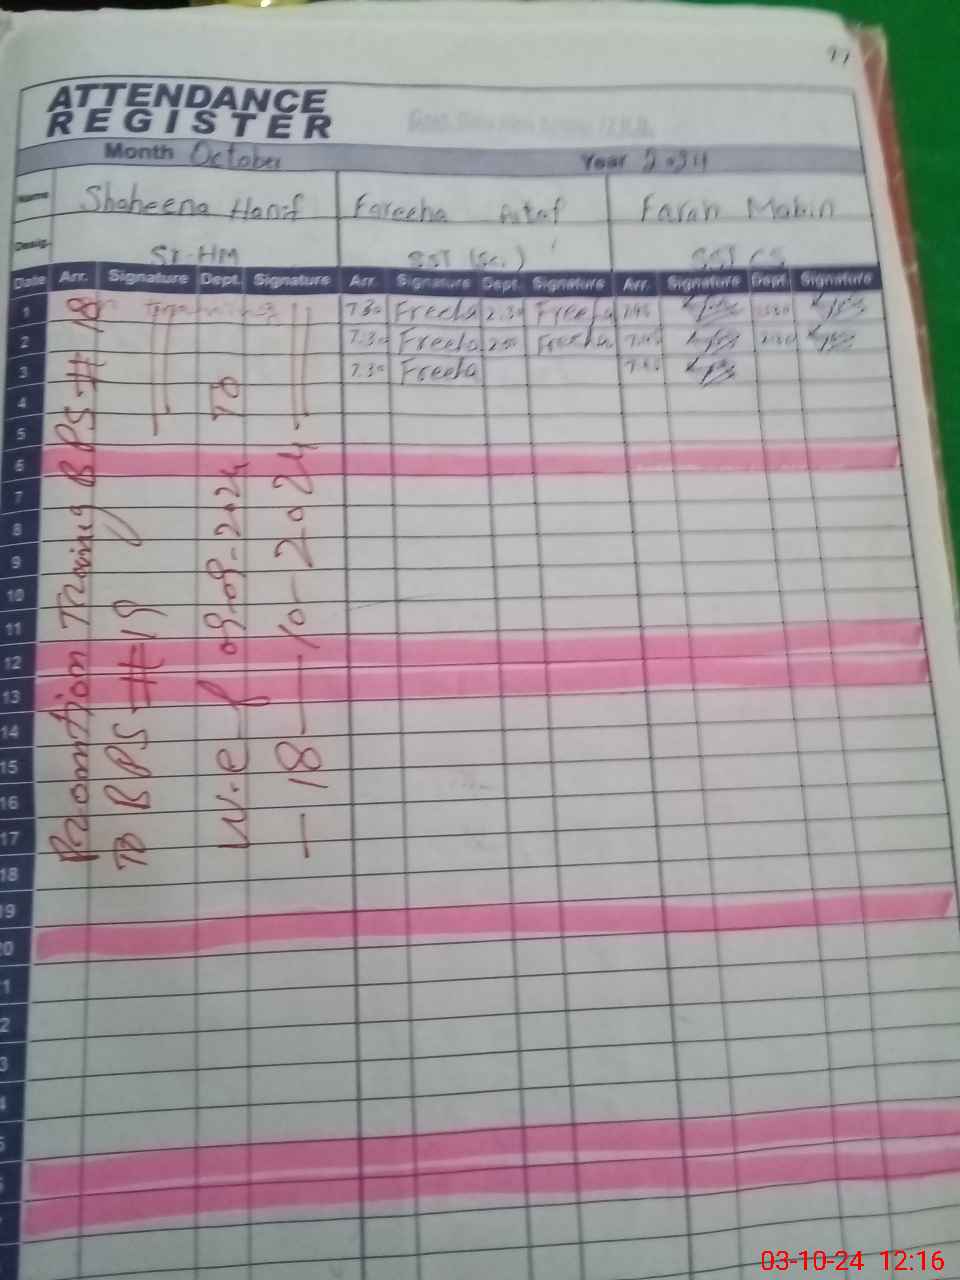 77
ATTENDANCE
REGISTER
Month October Year 2024
Name Shaheena Hanif Fareeha Altaf Farah Mahin
Desig. Sr-HM SST (Sc.) SST CS
Date Arr. Signature Dept. Signature Arr. Signature Dept. Signature Arr. Signature Dept. Signature
1 7.30 Freeha 2.30 Freeha 7.45
2 7.30 Freeha Freeha
3 7.30 Freeha
4
5
6
7
8
9
10
11
12
13
14
15
16
17
18
19
20
1
2
3
4
5
6
7
Promotion Training BPS # 18
To BPS # 19
w.e.f 09-09-2024 To
18-10-2024
03-10-24 12:16